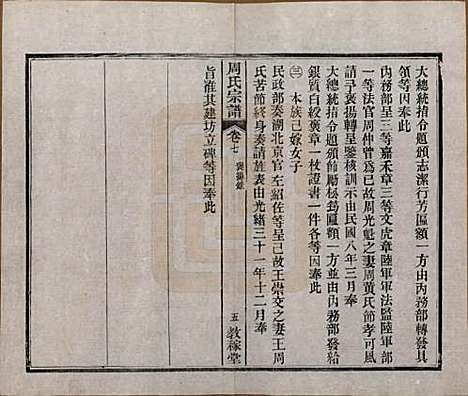 大總統指令題頒志潔行芳匾額一方由內務部轉發具
領等因奉此
內務部呈三等嘉禾章三等文虎章陸軍軍法監陸軍部
一等法官周仲曾爲已故周光魁之妻周黃氏節孝可風
請予褒揚轉呈鑒核訓示由民國八年三月奉
大總統指令題頒飭屬松筠匾額一方並由內務部發給
銀質白綬褒章一枚證書一件各等因奉此
㊂ 本族已嫁女子
民政部奏湖北京官左紹佐等呈已故王榮交之妻王周
氏苦節終身奏請旌表由光緒三十一年十二月奉
旨准其建坊立碑等因奉此
周氏宗譜 卷七 褒揚錄 五 敦稼堂